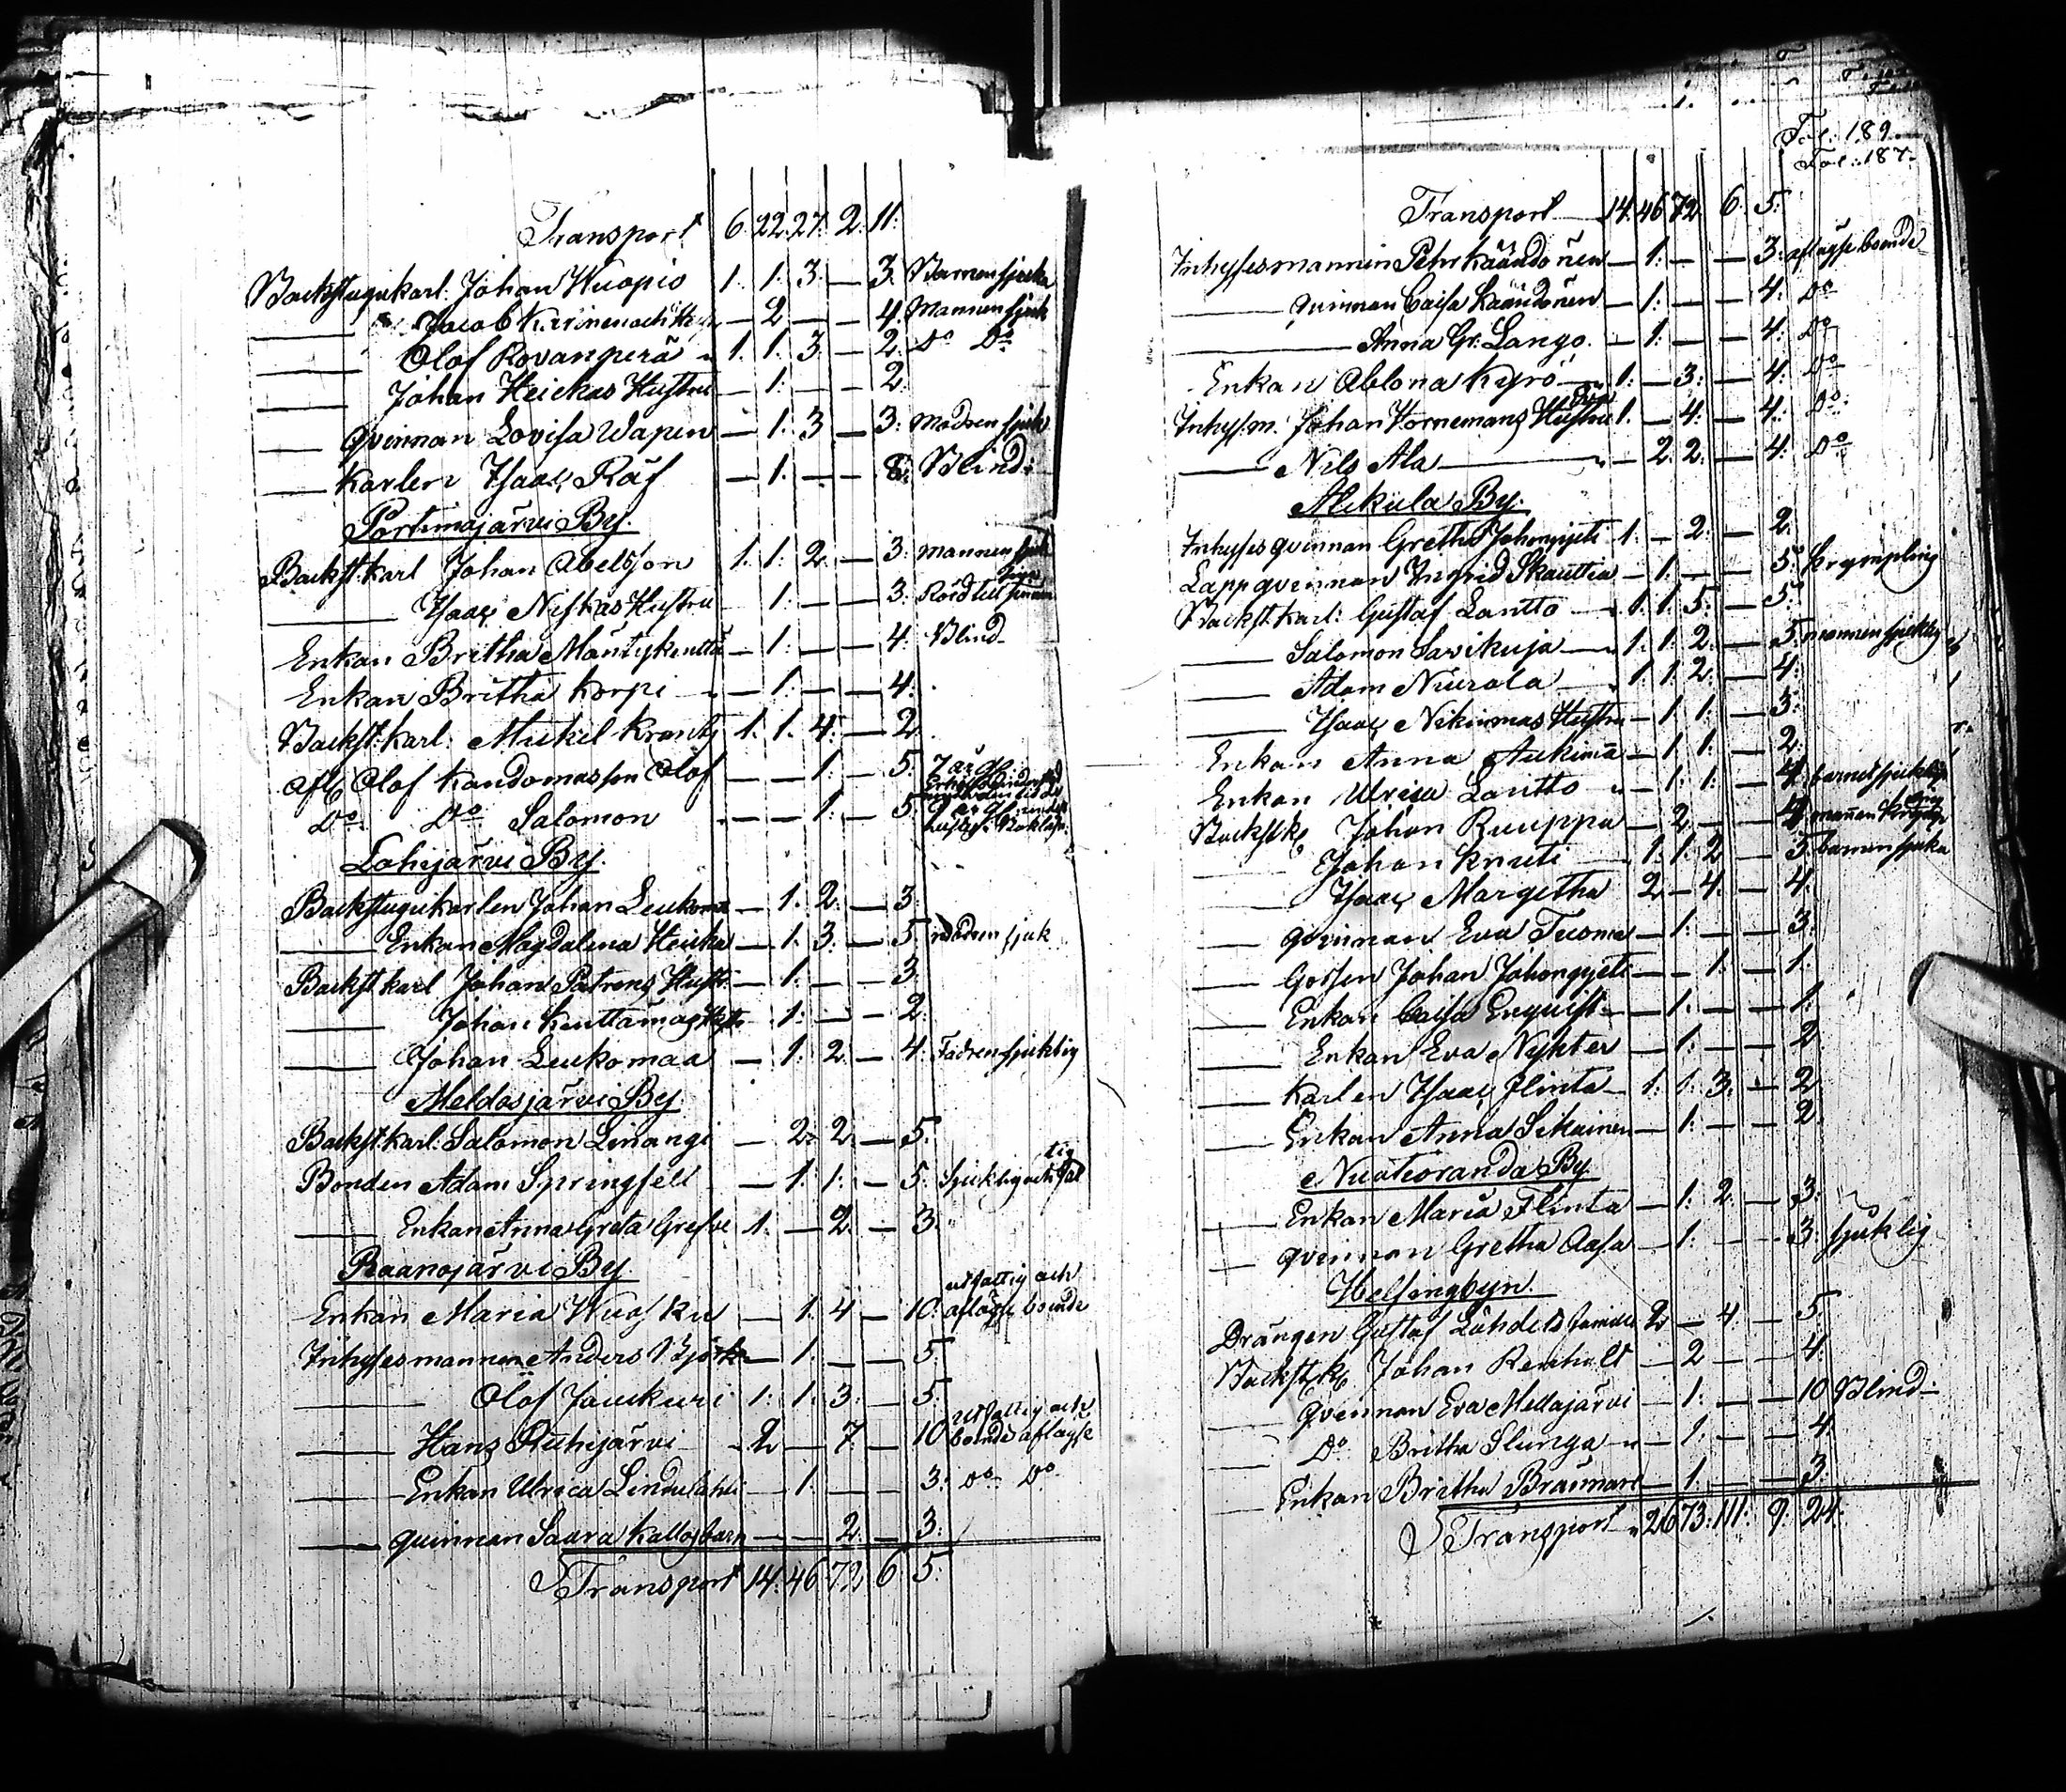 Transport 6. 22. 27. 2. 11:
Backstugukarl. Johan Kuopio 1. 1. 3. — 3. Barnen sjuka
— Jacob — 2 — — 4. Mannen sjuk
— Olof Rovanperä 1. 1. 3. — 2. Do Do
— Johan Heickas Hustru — 1. — — 2.
— qvinnan Lovisa Wapen — 1. 3 — 3. Modren sjuk
— Karlen Isaac Räf — 1. — — 8. Blind.
Portimojärvi By.
Backst. Karl Johan Abelsson 1. 1. 2. — 3. Mannen sjuk
— Isaac Niskas Hustru — 1. — — 3. Rörd till
Enkan Britha Mäntykenttä — 1. — — 4. Blind
Enkan Britha Korpi — 1. — — 4.
Backst. Karl. Mickel Krantz 1. 1. 4. — 2.
Afl. Olof Kandomassons Olof — — 1. — 5.
Do Do Salomon — — 1. — 5.
Lohijärvi By.
Backstugukarlen Johan Leukoma — 1. 2. — 3.
— Enkan Magdalena Heicka — 1. 3. — 5. modren sjuk
Backst karl Johan Patrons Hustr. — 1. — — 3.
— Johan Kenttämas Hust. — 1. — — 2.
— Johan Leukomaa — 1. 2. — 4. Fadren sjuklig
Meldosjärvi By
Backst. Karl. Salomon Linangi — 2. 2. — 5.
Bonden Adam Springfelt — 1. 1. — 5. Sjuklig och fattig
— Enkan Anna Greta Grefve 1. — 2. — 3.
Raanojärvi By.
Enkan Maria — 1. 4 — 10. utfattig och aflägse boende
Inhysesmannen Anders Björk — 1. — — 5.
— Olof Jauckuri 1. 1. 3. — 5.
— Hans Ruhijärvi 2 — 7. — 10 utfattig och boende aflägse
— Enkan Ulrica Lindulahti — 1. — — 3. Do Do
— qvinnan Saara Kallos barn — — 2. — 3.
Transport 14. 46. 72. 6. 5.
Fol: 189
Fol: 187
Transport 14. 46 72. 6. 5.
Inhysesmannen Pehr Käändönen — 1. — — 3. aflägse boende
— qvinnan Caisa Käändönen — 1. — — 4. Do
— Anna Gr. Lango. — 1. — — 4. Do
Enkan Ablona Kyrö 1. — 3. — 4. Do
Inhys. m. Johan Hornemans Hustru Eva 1. — 4. — 4. Do
— Nils Ala — 2. 2. — 4. Do
Alkula By.
Inhyses qvinnan Gretha Johonpjeti 1. — 2. — 2.
Lapp qvinnan Ingrid Skauttia — 1. — — 5. Krympling
Backst. Karl. Gustaf Lantto 1. 1. 5. — 5.
— Salomon Savikuja 1. 1. 2. — 5. mannen sjuklig
— Adam Niurala 1. 1. 2. — 4.
— Isaac Nikinmas Hustru — 1. 1. — 3.
Enkan Anna Aukima — 1. 1. — 2.
Enkan Ulrica Lantto — 1. 1. — 4. barnet sjukligt
Backst. k. Johan Ruuppa — 2 — — 4. mannen
— Johan Knuti 1. 1. 2 — 3. barnen sjuka
— Isaac Margetha 2 — 4. — 4.
— qvinnan Eva Tuoma — 1. — — 3.
— Gossen Johan Johonpjeti — — 1. — 1.
— Enkan Caisa Enquist — 1. — — 1.
— Enkan Eva Nykter — 1. — — 2
— Karlen Isaac Flinta 1. 1. 3. — 2
— Enkan Anna Sikainen — 1. — — 2.
Nuotioranda By
— Enkan Maria Flinta — 1. 2. — 3.
— qvinnan Gretha Aasa — 1. — — 3. sjuklig
Helsingbyn.
Drängen Gustaf Lahdes familie 2 — 4. — 5.
Backst. k. Johan Renhult — 2 — — 4.
— qvinnan Eva Mellajärvi — 1. — — 10 Blind
— Do Britha Slunga — 1. — — 4.
— Enkan Britha Braunare — 1. — — 3.
Transport 26 73. 111. 9. 24.